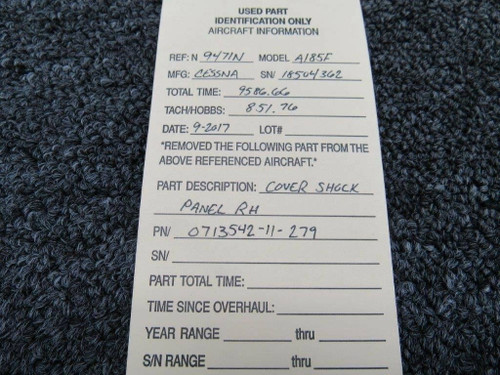 USED PART
IDENTIFICATION ONLY
AIRCRAFT INFORMATION
REF: N 9471N MODEL A185F
MFG: CESSNA SN/ 18504362
TOTAL TIME: 9586.66
TACH/HOBBS: 851.76
DATE: 9-2017 LOT#
"REMOVED THE FOLLOWING PART FROM THE
ABOVE REFERENCED AIRCRAFT."
PART DESCRIPTION: COVER SHOCK
PANEL RH
PN/ 0713542-11-279
SN/
PART TOTAL TIME:
TIME SINCE OVERHAUL:
YEAR RANGE thru
S/N RANGE thru